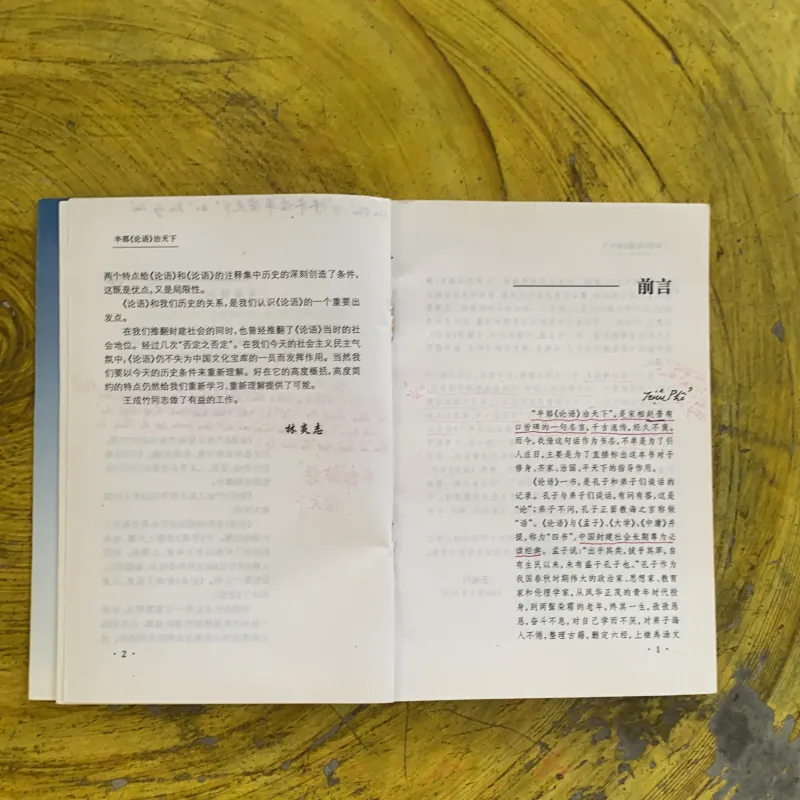 半部《论语》治天下
两个特点给《论语》和《论语》的注释集中历史的深刻创造了条件，
这既是优点，又是局限性。
《论语》和我们历史的关系，是我们认识《论语》的一个重要出
发点。
在我们推翻封建社会的同时，也曾经推翻了《论语》当时的社
会地位。经过几次“否定之否定”。在我们今天的社会主义民主气
氛中，《论语》仍不失为中国文化宝库的一员而发挥作用。当然我
们要以今天的历史条件来重新理解。好在它的高度概括，高度简
约的特点仍然给我们重新学习、重新理解提供了可能。
王成竹同志做了有益的工作。
林炎志
· 2 ·
前言
Triệu Phổ
“半部《论语》治天下”，是宋相赵普有
口皆碑的一句名言，千古流传，经久不衰。
而今，我借这句话作书名，不单是为了引
人注目，主要是为了直接标出这本书对于
修身、齐家、治国、平天下的指导作用。
《论语》一书，是孔子和弟子们谈话的
记录。孔子与弟子们谈话，有问有答，这是
“论”；弟子不问，孔子正面教诲之言称做
“语”。《论语》与《孟子》、《大学》、《中庸》并
提，称为“四书”，中国封建社会长期尊为必
读经典。孟子说：“出乎其类，拔乎其萃，自
有生民以来，未有盛于孔子也。”孔子作为
我国春秋时期伟大的政治家、思想家、教育
家和伦理学家，从风华正茂的青年时代投
身，到两鬓染霜的老年，终其一生，孜孜恳
恳，奋斗不息，对自己学而不厌，对弟子诲
人不倦，整理古籍，删定六经，上继禹汤文
· 1 ·